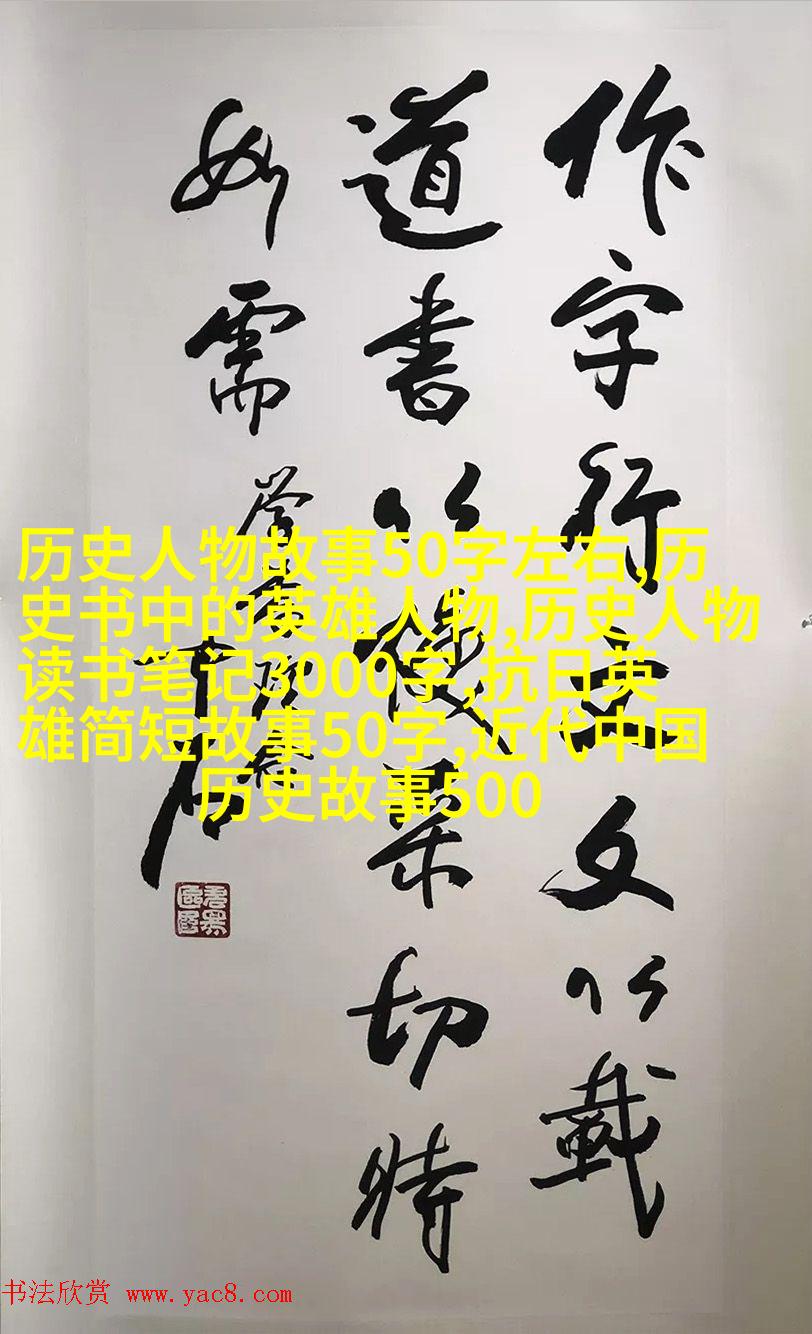 作字行文文以載
道書以采切時
如需
历史人物故事50字左右,历
史书中的英雄人物,历史人物
读书笔记3000字,抗日英
雄简短故事50字,近代中国
历史故事500
书法欣赏 www.yac8.com